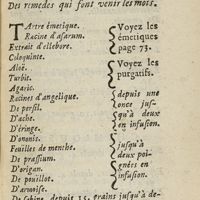 Des remedes qui font venir les mois.
TArtre émetique.
Racine d'asarum.
Extrait d'ellebore.
Voyez les
émetiques
page 73.
Coloquinte.
Aloë.
Turbit.
Agaric.
Voyez les
purgatifs.
Racines d'angelique.
De persil.
D'ache.
D'éringe.
D'ononis.
depuis une
once jus-
qu'à deux
en infusion.
Feuilles de menthe.
De prassium.
D'origan.
De pouillot.
D'armoise.
jusqu'à
deux poi-
gnées en
infusion.
De sabine, depuis 15. grains jusqu'à de-